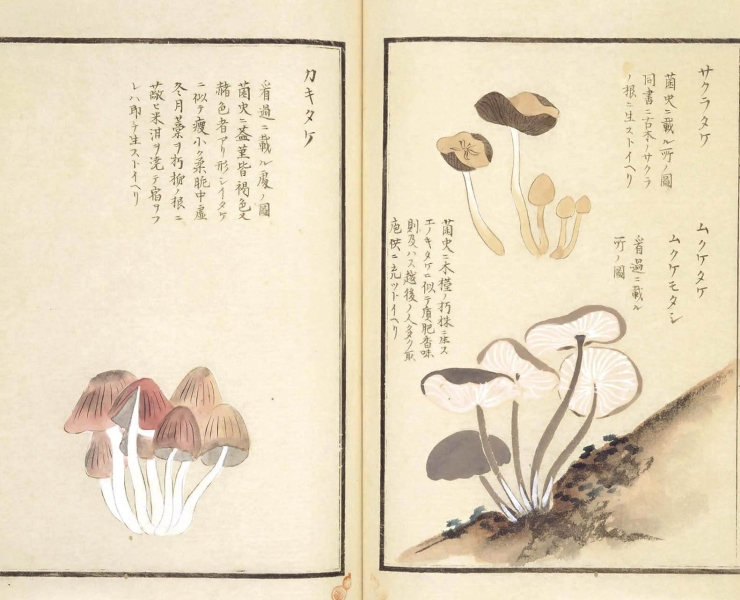 サクラタケ
菌史ニ載ル所ノ圖
同書ニ古木ノサクラ
ノ根ニ生ストイヘリ
ムクケタケ
ムクケモタシ
看過ニ載ル
所ノ圖
菌史ニ木槿ノ朽株ニ生ス
エノキタケニ似テ質肥香味
則及ハス越後ノ人多ク取
庖供ニ充ツトイヘリ
カキタケ
看過ニ載ル處ノ圖
菌史ニ蓋莖皆褐色又
赭色者アリ形シイタケ
ニ似テ瘦小ク柔脆中虚
冬月藁ヲ朽柳ノ根ニ
蔽ヒ米泔ヲ澆テ宿ヲフ
レハ即チ生ストイヘリ